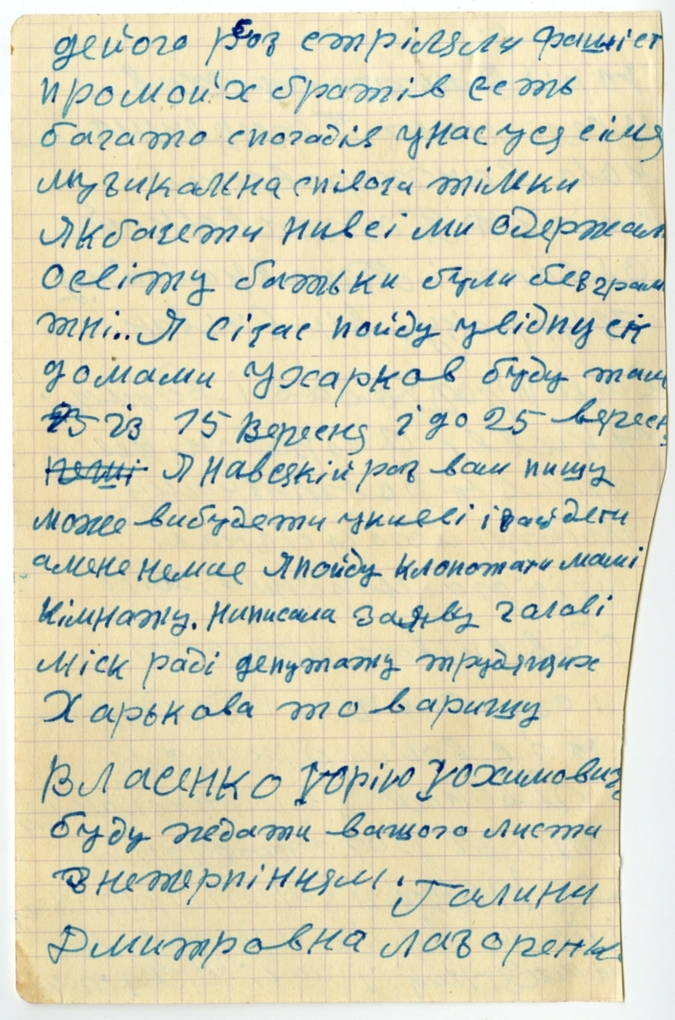 дейого роз стріляли фашіст
промоїх братів єсть
багато спогадів унас уся сімя
музикальна співоги тілки
Якбачети нивсі ми одержал
освіту батьки були безграм
тні.. Я січас пойду увідпуск
домами ухарков буду там
із 15 вересня і до 25 вересн
Я навсякій роз вам пишу
може вибудети укиеві ізайдети
амене немае Япойду клопотати мамі
кімнату. написала заяву голові
міск раді депутату трудящих
Харькова товаришу
Власенко Юрію Юхимовичу
буду ждати вашого листа
знетерпінням. Галина
Дмитровна Лазоренк